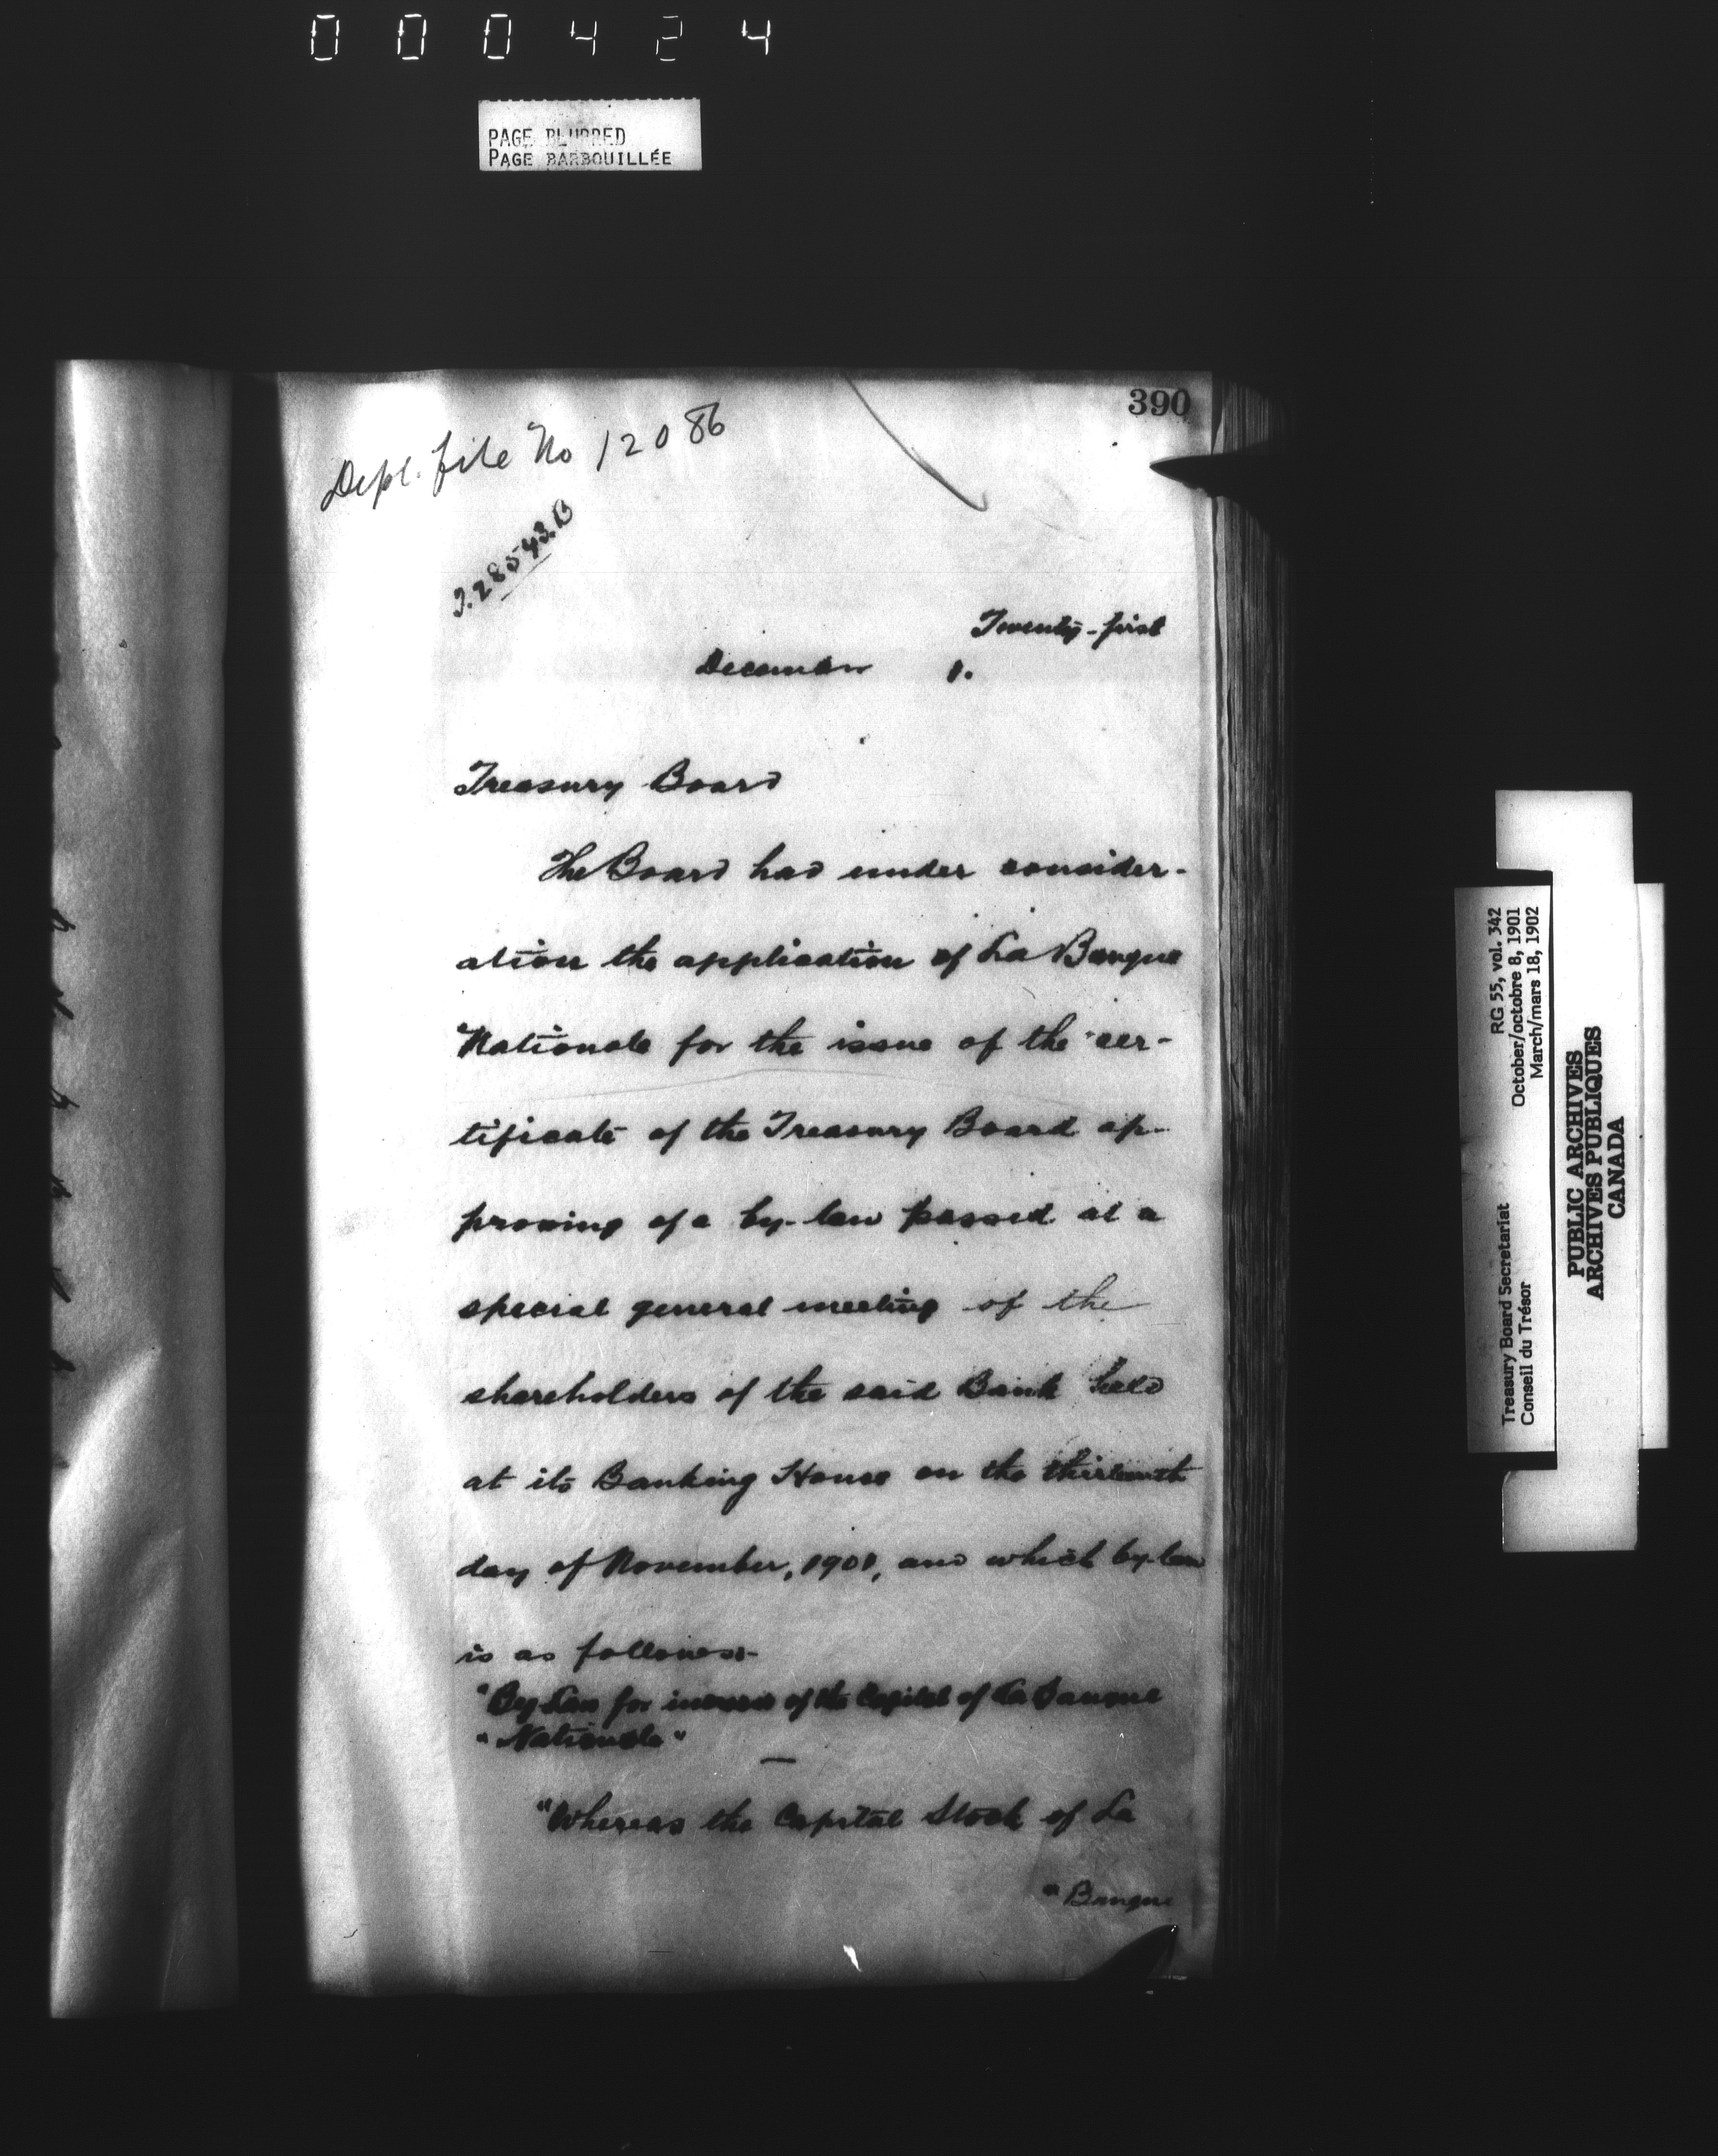 000424
PAGE BLURRED
PAGE BARBOUILLÉE
390
Dept. file No 12086
T.28543.B
Twenty-first
December 1.
Treasury Board
The Board had under consider-
ation the application of La Banque
Nationale for the issue of the cer-
tificate of the Treasury Board ap-
proving of a by-law passed at a
special general meeting of the
shareholders of the said Bank held
at its Banking House on the thirteenth
day of November, 1901, and which by-law
is as follows:-
"By-Law for increase of the Capital of La Banque
"Nationale"
"Whereas the Capital Stock of La
"Banque
Treasury Board Secretariat RG 55, vol. 342
Conseil du Trésor October/octobre 8, 1901
March/mars 18, 1902
PUBLIC ARCHIVES
ARCHIVES PUBLIQUES
CANADA